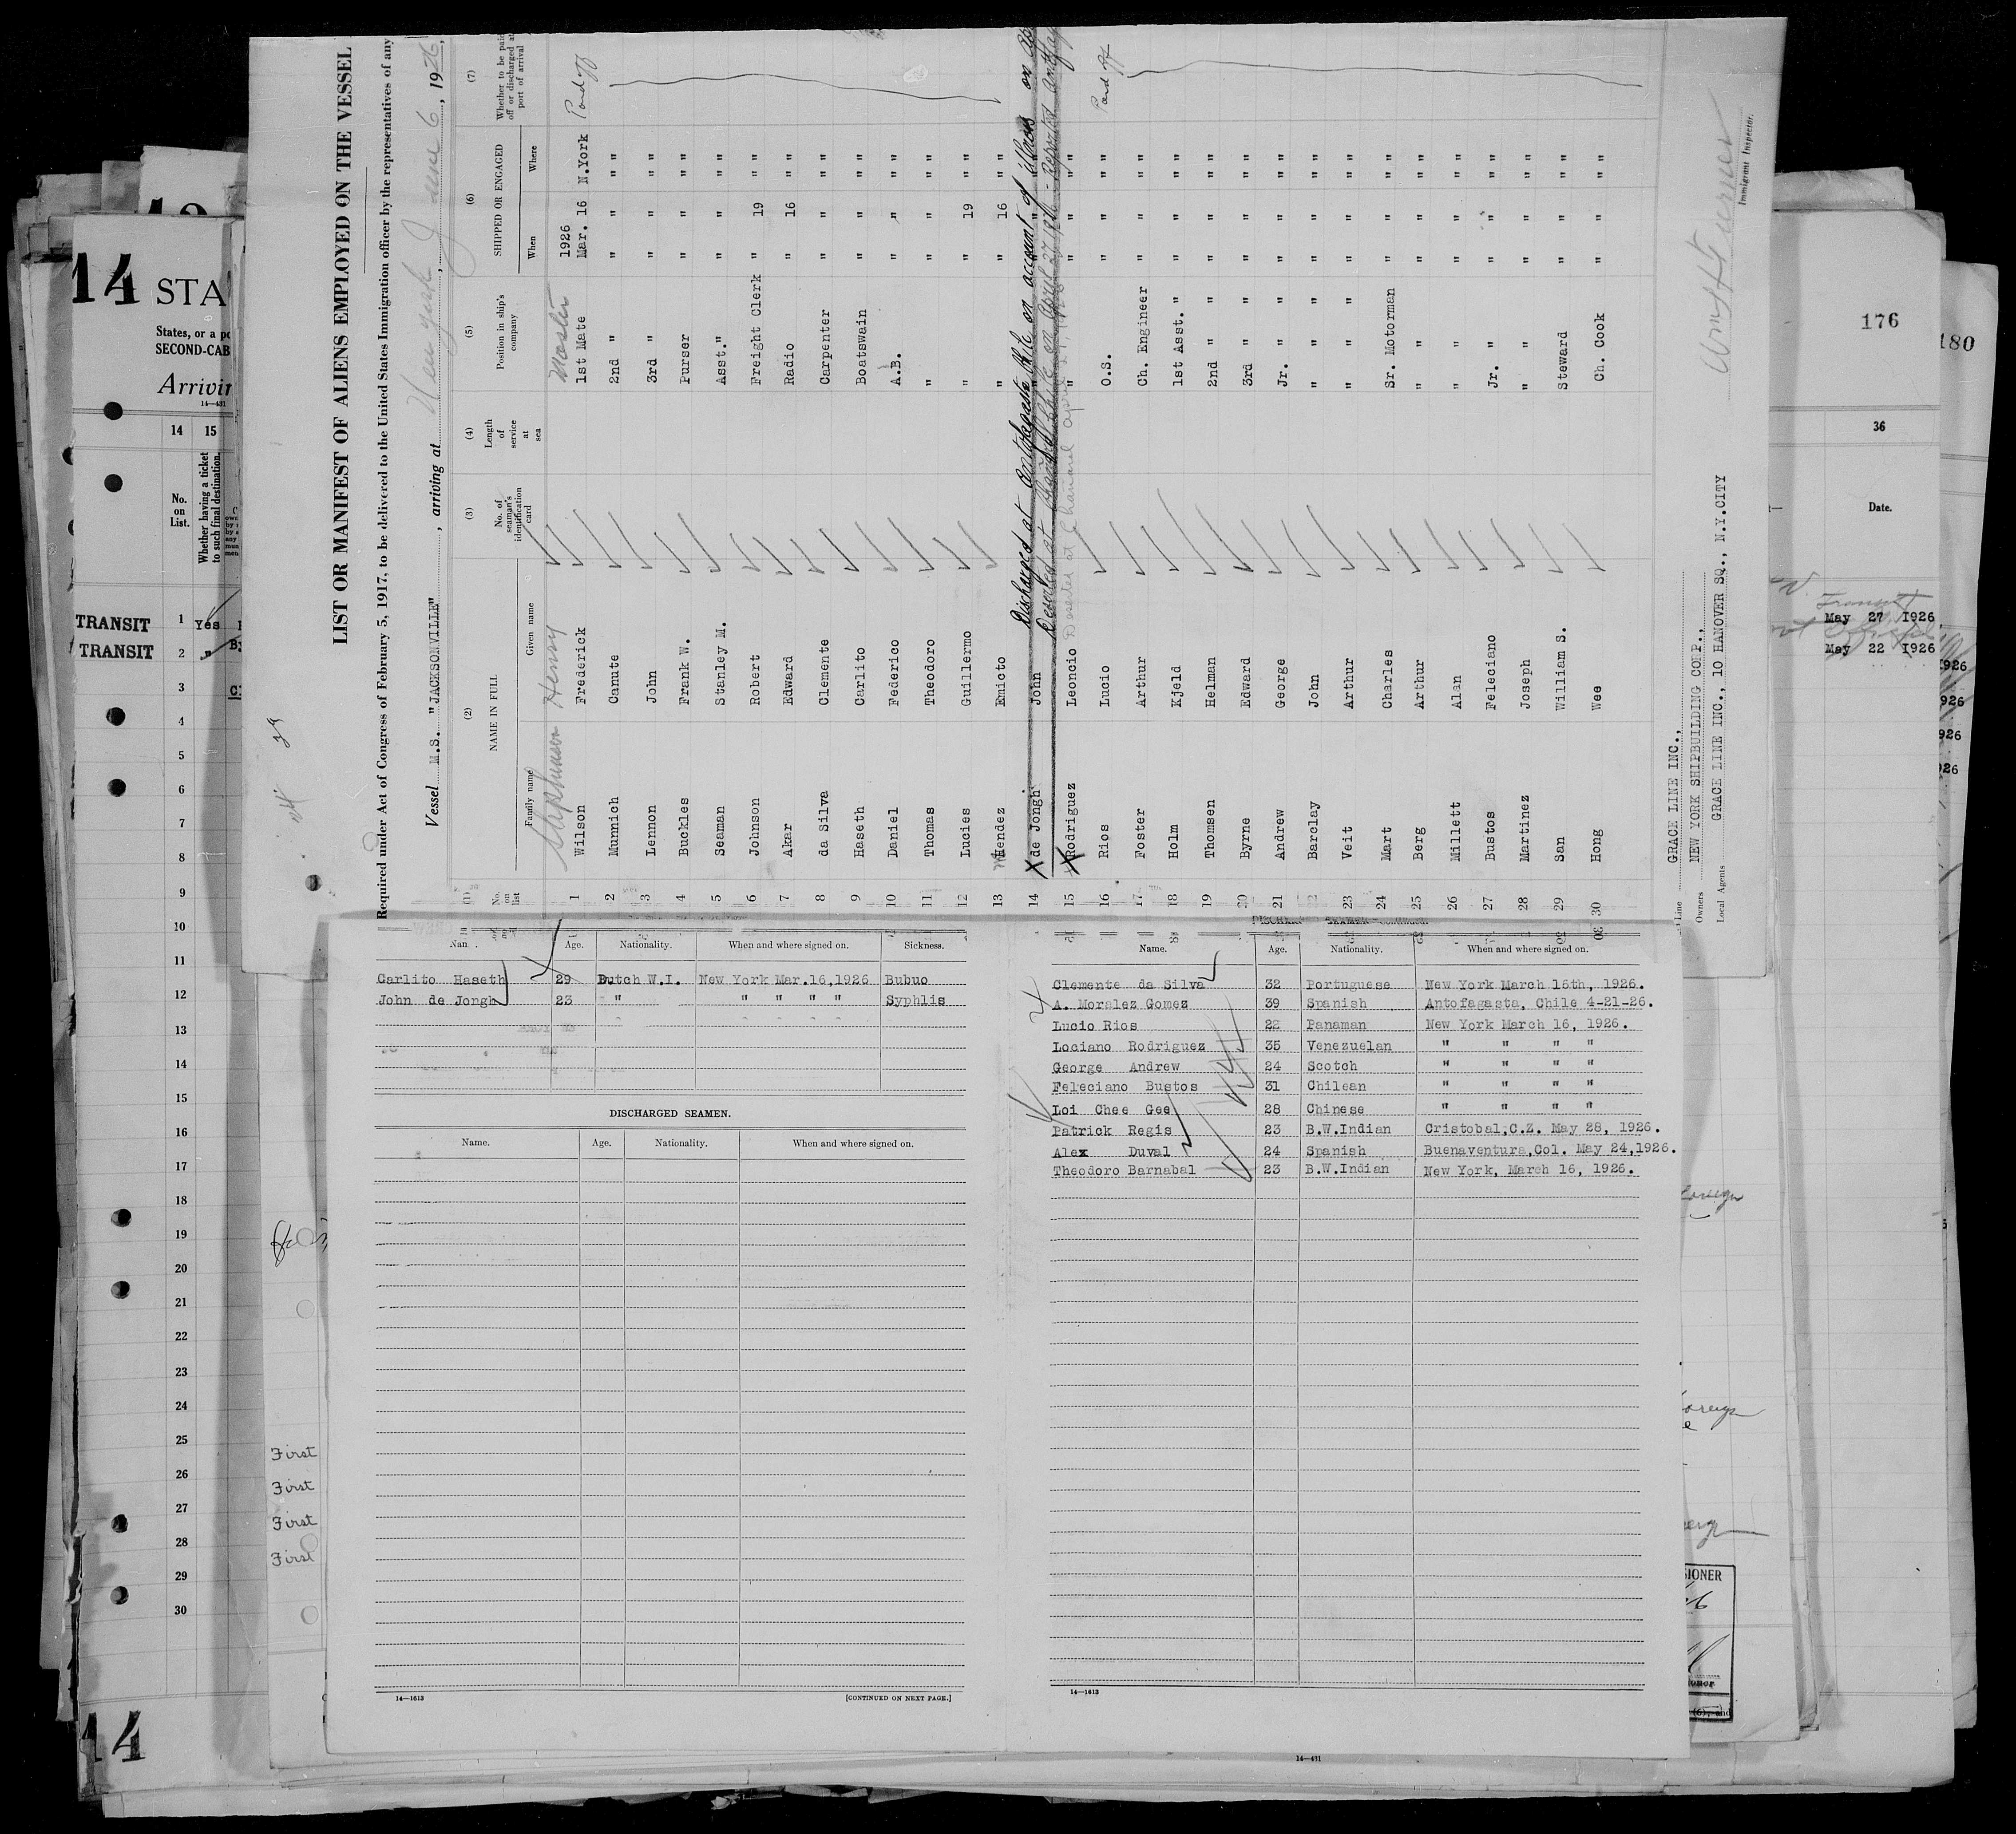 14 STA
States, or a po
SECOND-CAB
Arrivin
14—431
14 15
No. on List.
Whether having a ticket to such final destination.
TRANSIT 1 Yes
TRANSIT 2 "
3
4
5
6
7
8
9
10
11
12
13
14
15
16
17
18
19
20
21
22
23
24
25
26
27
28
29
30
14
First
First
First
First
LIST OR MANIFEST OF ALIENS EMPLOYED ON THE VESSEL
Required under Act of Congress of February 5, 1917, to be delivered to the United States Immigration officer by the representatives of any
Vessel M.S. "JACKSONVILLE", arriving at New York June 6, 1926,
(1) (2) (3) (4) (5) (6) (7)
No. on list
NAME IN FULL
Family name Given name
No. of seaman's identification card
Length of service at sea
Position in ship's company
SHIPPED OR ENGAGED
When Where
Whether to be paid off or discharged at port of arrival
Henry Master
1926
1 Wilson Frederick 1st Mate Mar. 16 N.York Paid off
2 Munmich Canute 2nd " " " "
3 Lennon John 3rd " " " "
4 Buckles Frank W. Purser " " "
5 Seaman Stanley M. Asst." " " "
6 Johnson Robert Freight Clerk " 19 "
7 Akar Edward Radio " 16 "
8 da Silva Clemente Carpenter " " "
9 Haseth Carlito Boatswain " " "
10 Daniel Federico A.B. " " "
11 Thomas Theodoro " " " "
12 Lucies Guillermo " " 19 "
13 Mendez Emicto " " 16 "
14 x de Jongh John Discharged at Antofagasta Chile on account of illness on
15 x Rodriguez Leoncio " " " "
Deserted at Chanaral april 27, 1926
16 Rios Lucio O.S. " " " Paid off
17 Foster Arthur Ch. Engineer " " "
18 Holm Kjeld 1st Asst. " " " "
19 Thomsen Helman 2nd " " " "
20 Byrne Edward 3rd " " " "
21 Andrew George Jr. " " " "
22 Barclay John " " " " "
23 Veit Arthur " " " " "
24 Mart Charles Sr. Motorman " " "
25 Berg Arthur " " " " "
26 Millett Alan " " " " "
27 Bustos Feleciano Jr. " " " "
28 Martinez Joseph " " " " "
29 San William S. Steward " " "
30 Hong Wee Ch. Cook " " "
Line GRACE LINE INC.,
Owners NEW YORK SHIPBUILDING CORP.,
Local Agents GRACE LINE INC., 10 HANOVER SQ., N.Y.CITY
Immigrant Inspector.
176
180
36
Date.
Transit
May 27 1926
May 22 1926
1926
926
926
926
Nam . Age. Nationality. When and where signed on. Sickness.
Carlito Haseth 29 Dutch W.I. New York Mar.16,1926 Bubuo
John de Jongh 23 " " " " " Syphlis
DISCHARGED SEAMEN.
Name. Age. Nationality. When and where signed on.
14—1613
[CONTINUED ON NEXT PAGE.]
Name. Age. Nationality. When and where signed on.
Clemente da Silva 32 Portuguese New York March 15th, 1926.
A. Moralez Gomez 39 Spanish Antofagasta, Chile 4-21-26.
Lucio Rios 22 Panaman New York March 16, 1926.
Lociano Rodriguez 35 Venezuelan " " " "
George Andrew 24 Scotch " " " "
Feleciano Bustos 31 Chilean " " " "
Loi Chee Gee 28 Chinese " " " "
Patrick Regis 23 B.W.Indian Cristobal,C.Z. May 28, 1926.
Alex Duval 24 Spanish Buenaventura,Col. May 24,1926.
Theodoro Barnabal 23 B.W.Indian New York, March 16, 1926.
14—1613
14—431
SIONER
(6), and